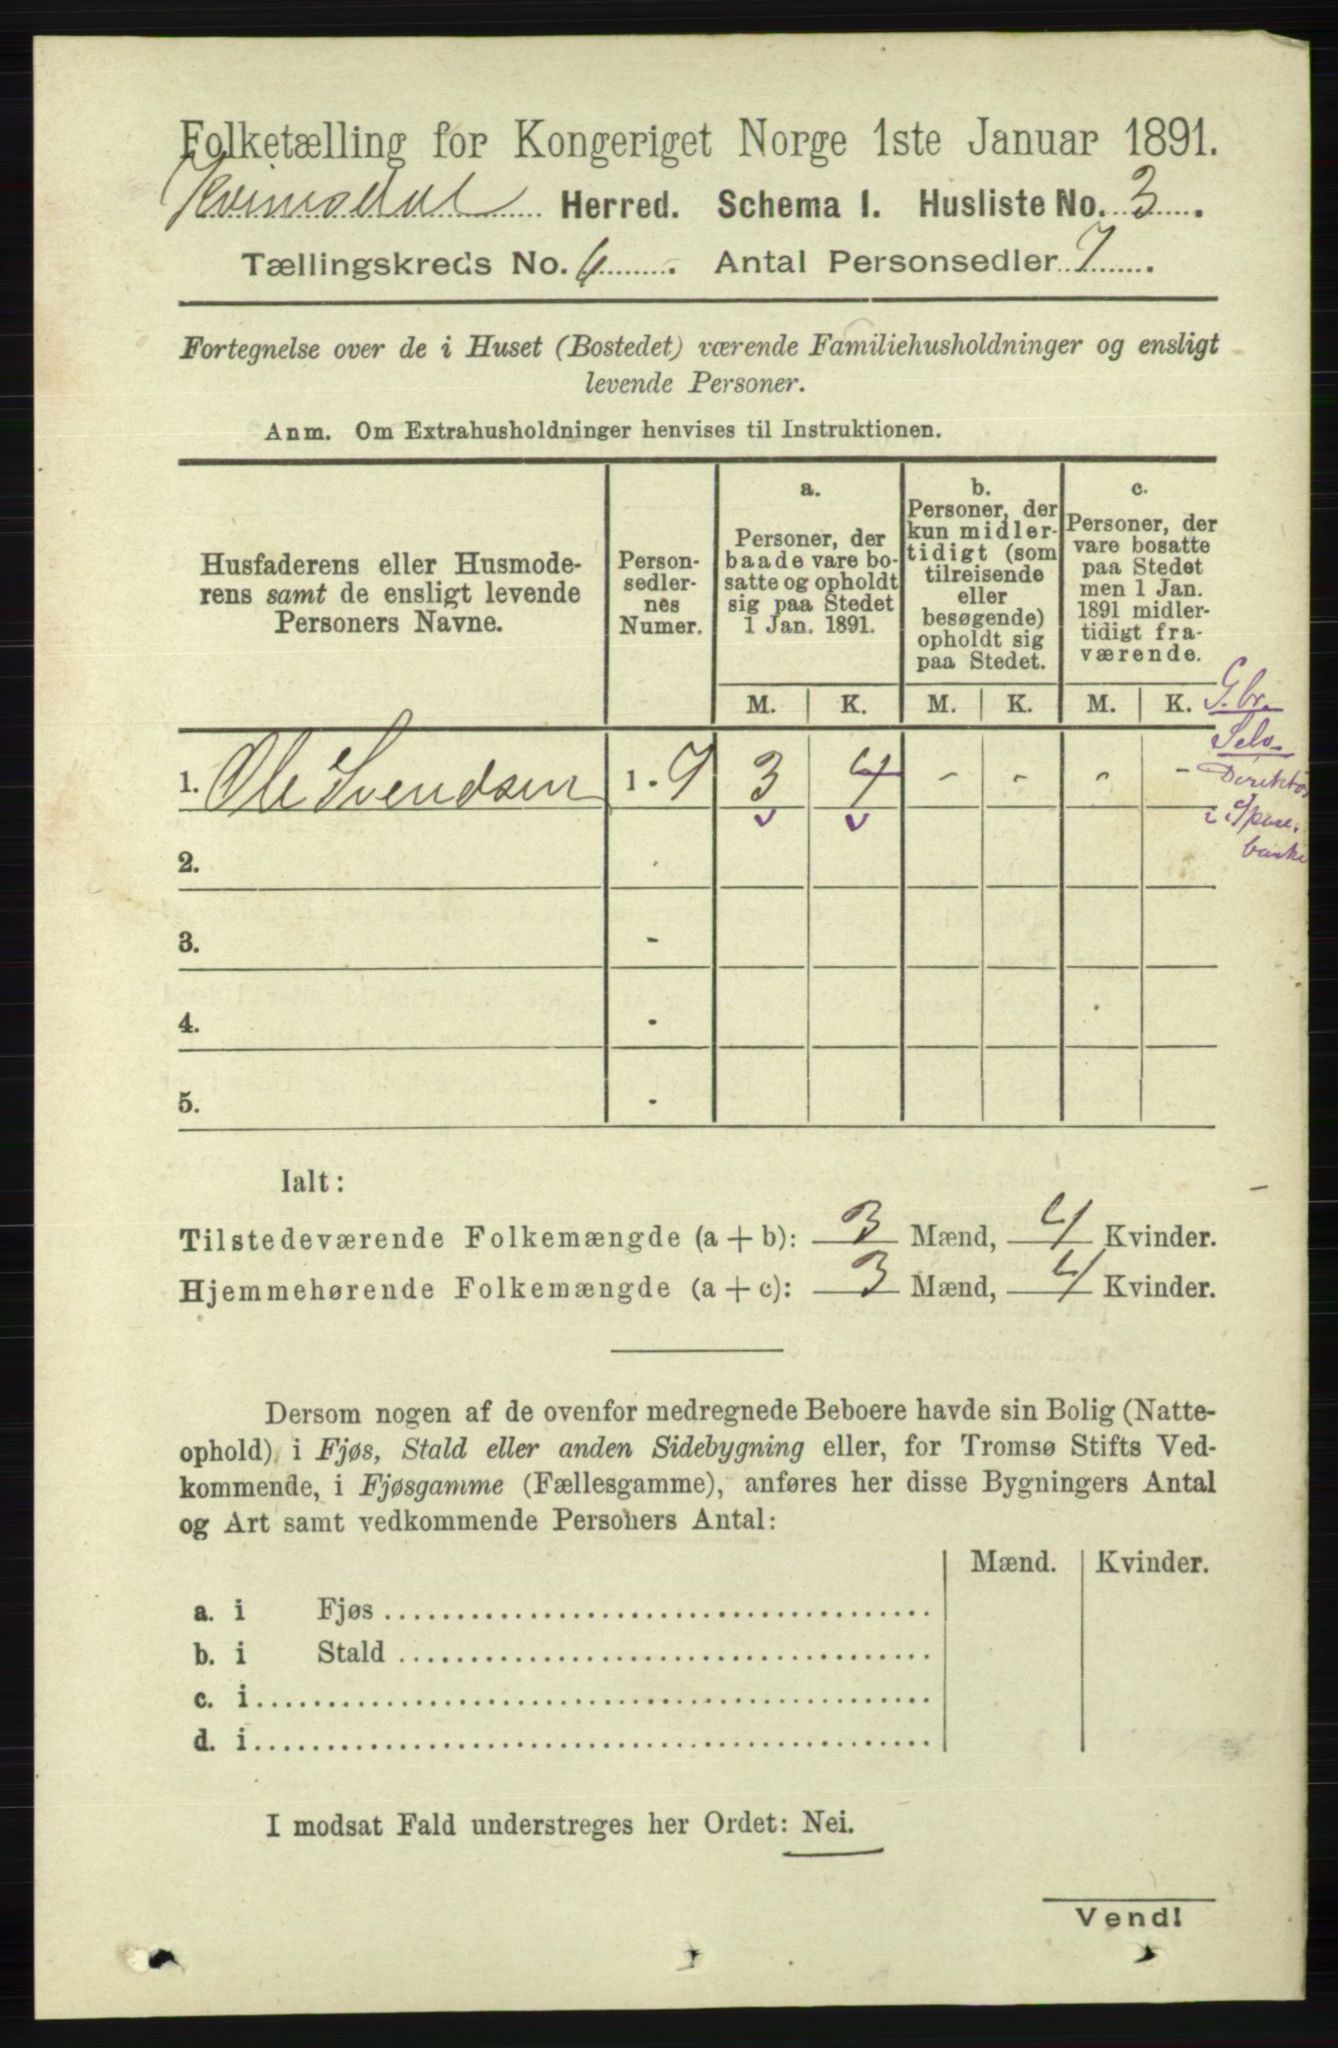 Folketælling for Kongeriget Norge 1ste Januar 1891.
Herred. Schema I. Husliste No. 3
Tællingskreds No. 6. Antal Personsedler 7
Fortegnelse over de i Huset (Bostedet) værende Familiehusholdninger og ensligt
levende Personer.
Anm. Om Extrahusholdninger henvises til Instruktionen.
Husfaderens eller Husmode-
rens samt de ensligt levende
Personers Navne.
Person-
sedler-
nes
Numer.
a.
Personer, der
baade vare bo-
satte og opholdt
sig paa Stedet
1 Jan. 1891.
b.
Personer, der
kun midler-
tidigt (som
tilreisende
eller
besøgende)
opholdt sig
paa Stedet.
c.
Personer, der
vare bosatte
paa Stedet
men 1 Jan.
1891 midler-
tidigt fra-
værende.
M. K. M. K. M. K.
G.br.
Selv.
Direktør
i Spare.
banke
1. Ole Svendsen 1 - 7 3 4 - - - -
2.
3. -
4. -
5. -
Ialt:
Tilstedeværende Folkemængde (a + b): 3 Mænd, 4 Kvinder.
Hjemmehørende Folkemængde (a + c): 3 Mænd, 4 Kvinder.
Dersom nogen af de ovenfor medregnede Beboere havde sin Bolig (Natte-
ophold) i Fjøs, Stald eller anden Sidebygning eller, for Tromsø Stifts Ved-
kommende, i Fjøsgamme (Fællesgamme), anføres her disse Bygningers Antal
og Art samt vedkommende Personers Antal:
Mænd. Kvinder.
a. i Fjøs
b. i Stald
c. i
d. i
I modsat Fald understreges her Ordet: Nei.
Vend!